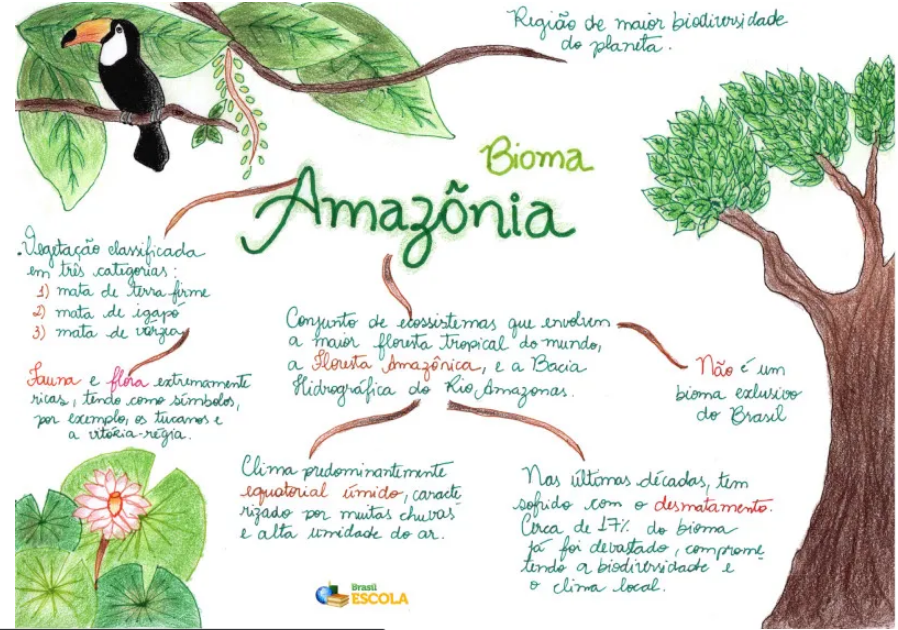 Região de maior biodiversidade
do planeta.
Bioma
Amazõnia
Vegetação classificada
em três categorias:
1) mata de terra firme
2) mata de igapó
3) mata de várzea
Fauna e flora extremamente
ricas, tendo como símbolos,
por exemplo, os tucanos e
a vitória-régia.
Conjunto de ecossistemas que envolvem
a maior floresta tropical do mundo,
a Floresta Amazônica, e a Bacia
Hidrográfica do Rio Amazonas.
Não é um
bioma exclusivo
do Brasil
Clima predominantemente
equatorial úmido, caracte
rizado por muitas chuvas
e alta umidade do ar.
Nas últimas décadas, tem
sofrido com o desmatamento.
Cerca de 17% do bioma
já foi devastado, comprome
tendo a biodiversidade e
o clima local.
Brasil
ESCOLA